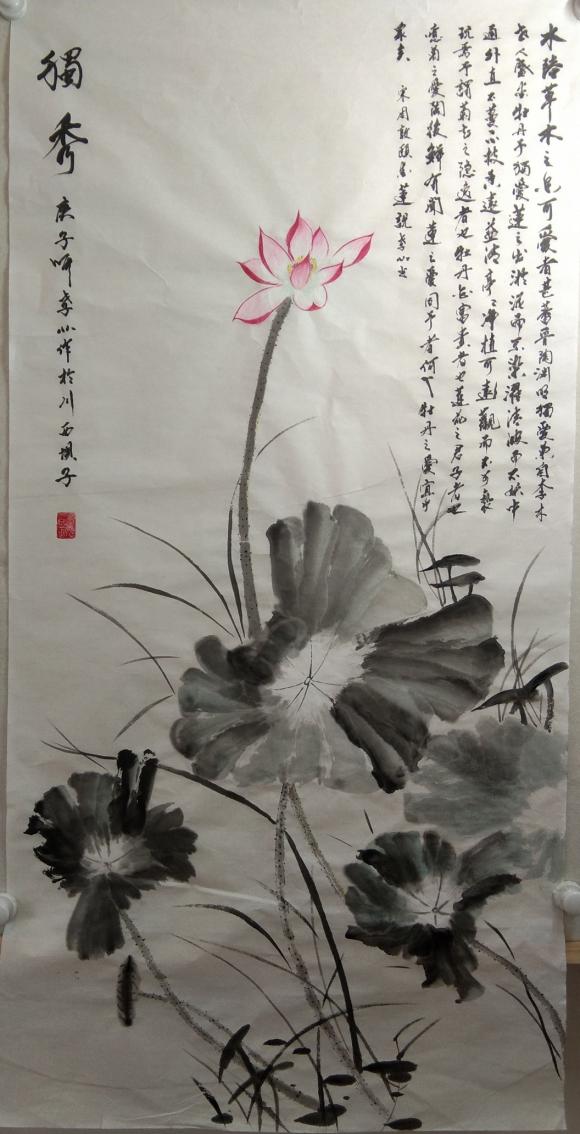 水陸草木之花可愛者甚蕃晋陶渊明獨愛菊自李木
人盛牡丹予獨愛蓮之出淤泥而不染濯清波而不妖中
通外直不蔓不枝香遠益清亭亭净植可遠觀而不可褻
玩焉予謂菊花之隐逸者也牡丹花富貴者也蓮花之君子者也
噫菊之愛陶後鮮有聞蓮之愛同予者何人牡丹之愛宜乎
衆矣 宋周敦頤愛蓮説李心书
獨秀
庚子李心作於川西壩子